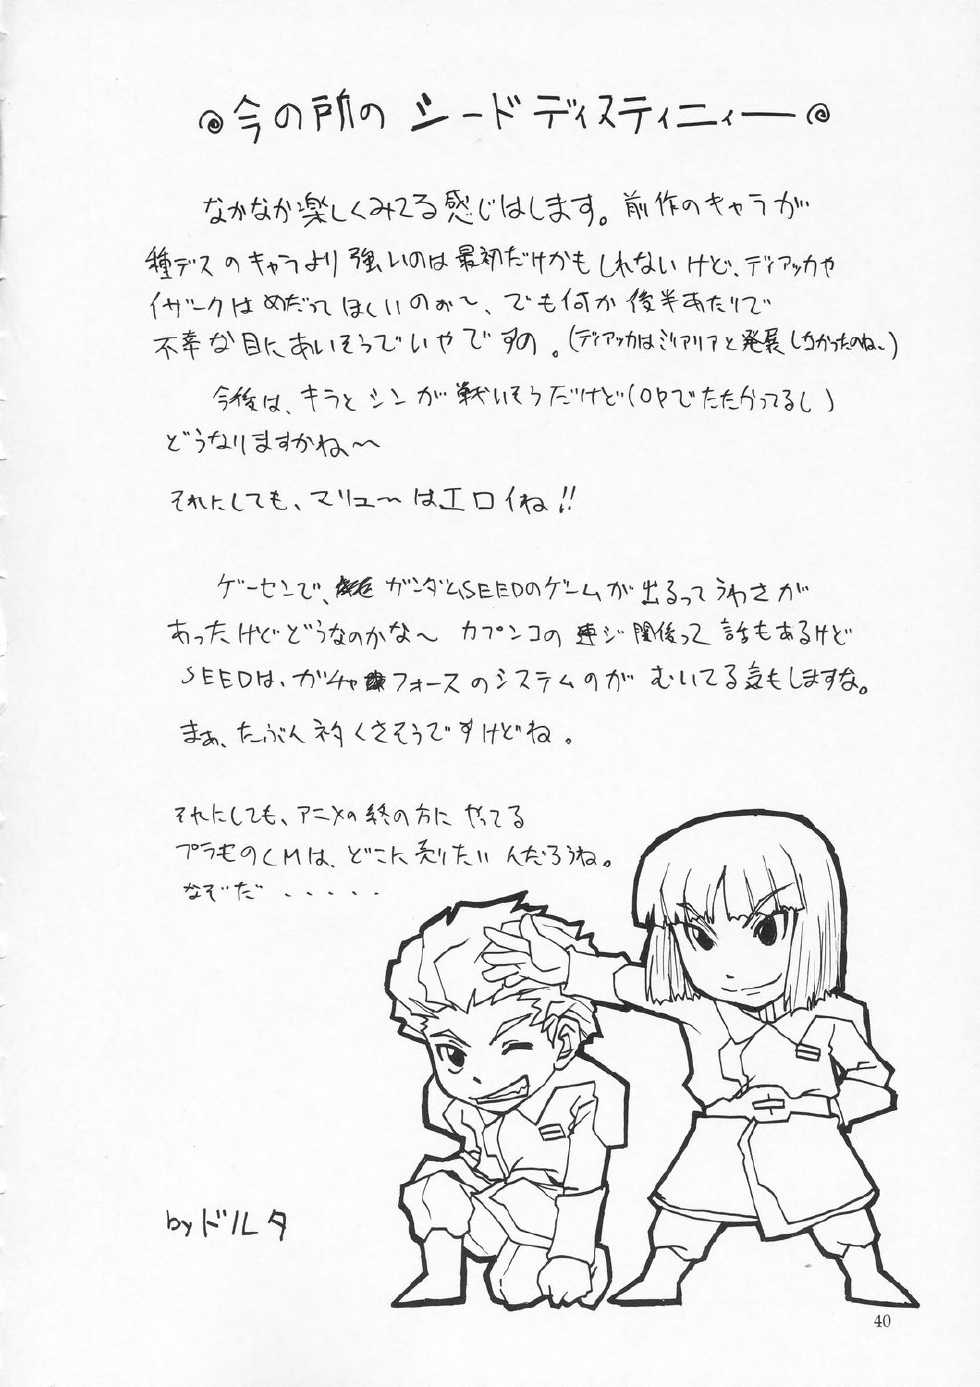 今の所の シードディスティニィー
なかなか楽しくみてる感じはします。前作のキャラが
種デスのキャラより強いのは最初だけかもしれないけど、ディアッカや
イザークはめだってほしいのぉ〜、でも何か後半あたりで
不幸な目にあいそうでいやですの。(ディアッカはミリアリアと発展しなかったのね〜)
今後は、キラとシンが戦いそうだけど(OPでたたかってるし)
どうなりますかね〜
それにしても、マリュ〜はエロイね!!
ゲーセンで、ガンダムSEEDのゲームが出るってうわさが
あったけどどうなのかな〜 カプンコの連ジ関係って話もあるけど
SEEDは、ガチャフォースのシステムのが むいてる気もしますな。
まぁ、たぶんネタくさそうですけどね。
それにしても、アニメの終の方に やってる
プラモのCMは、どこに売りたいんだろうね。
なぞだ・・・・・
by ドルタ
40